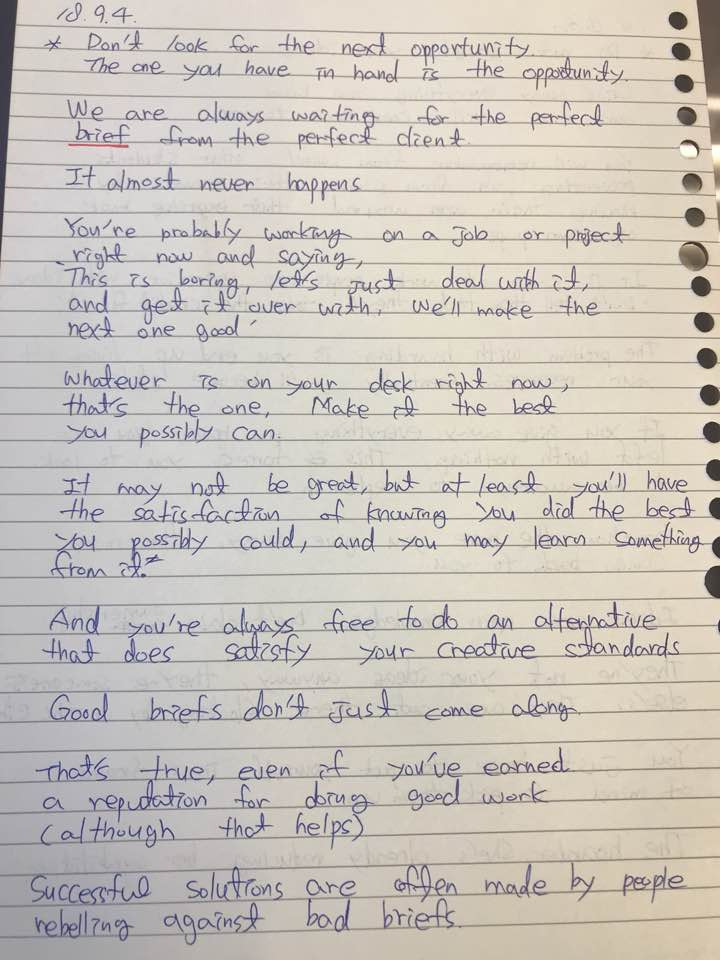 18.9.4.
* Don't look for the next opportunity.
The one you have in hand is the opportunity.
We are always waiting for the perfect
brief from the perfect client.
It almost never happens
You're probably working on a job or project
right now and saying,
This is boring, let's just deal with it,
and get it over with, We'll make the
next one good'
Whatever is on your desk right now,
that's the one, Make it the best
you possibly can.
It may not be great, but at least you'll have
the satisfaction of knowing you did the best
you possibly could, and you may learn something
from it.
And you're always free to do an alternative
that does satisfy your creative standards
Good briefs don't just come along.
That's true, even if you've earned
a reputation for doing good work
(although that helps)
Successful solutions are often made by people
rebelling against bad briefs.